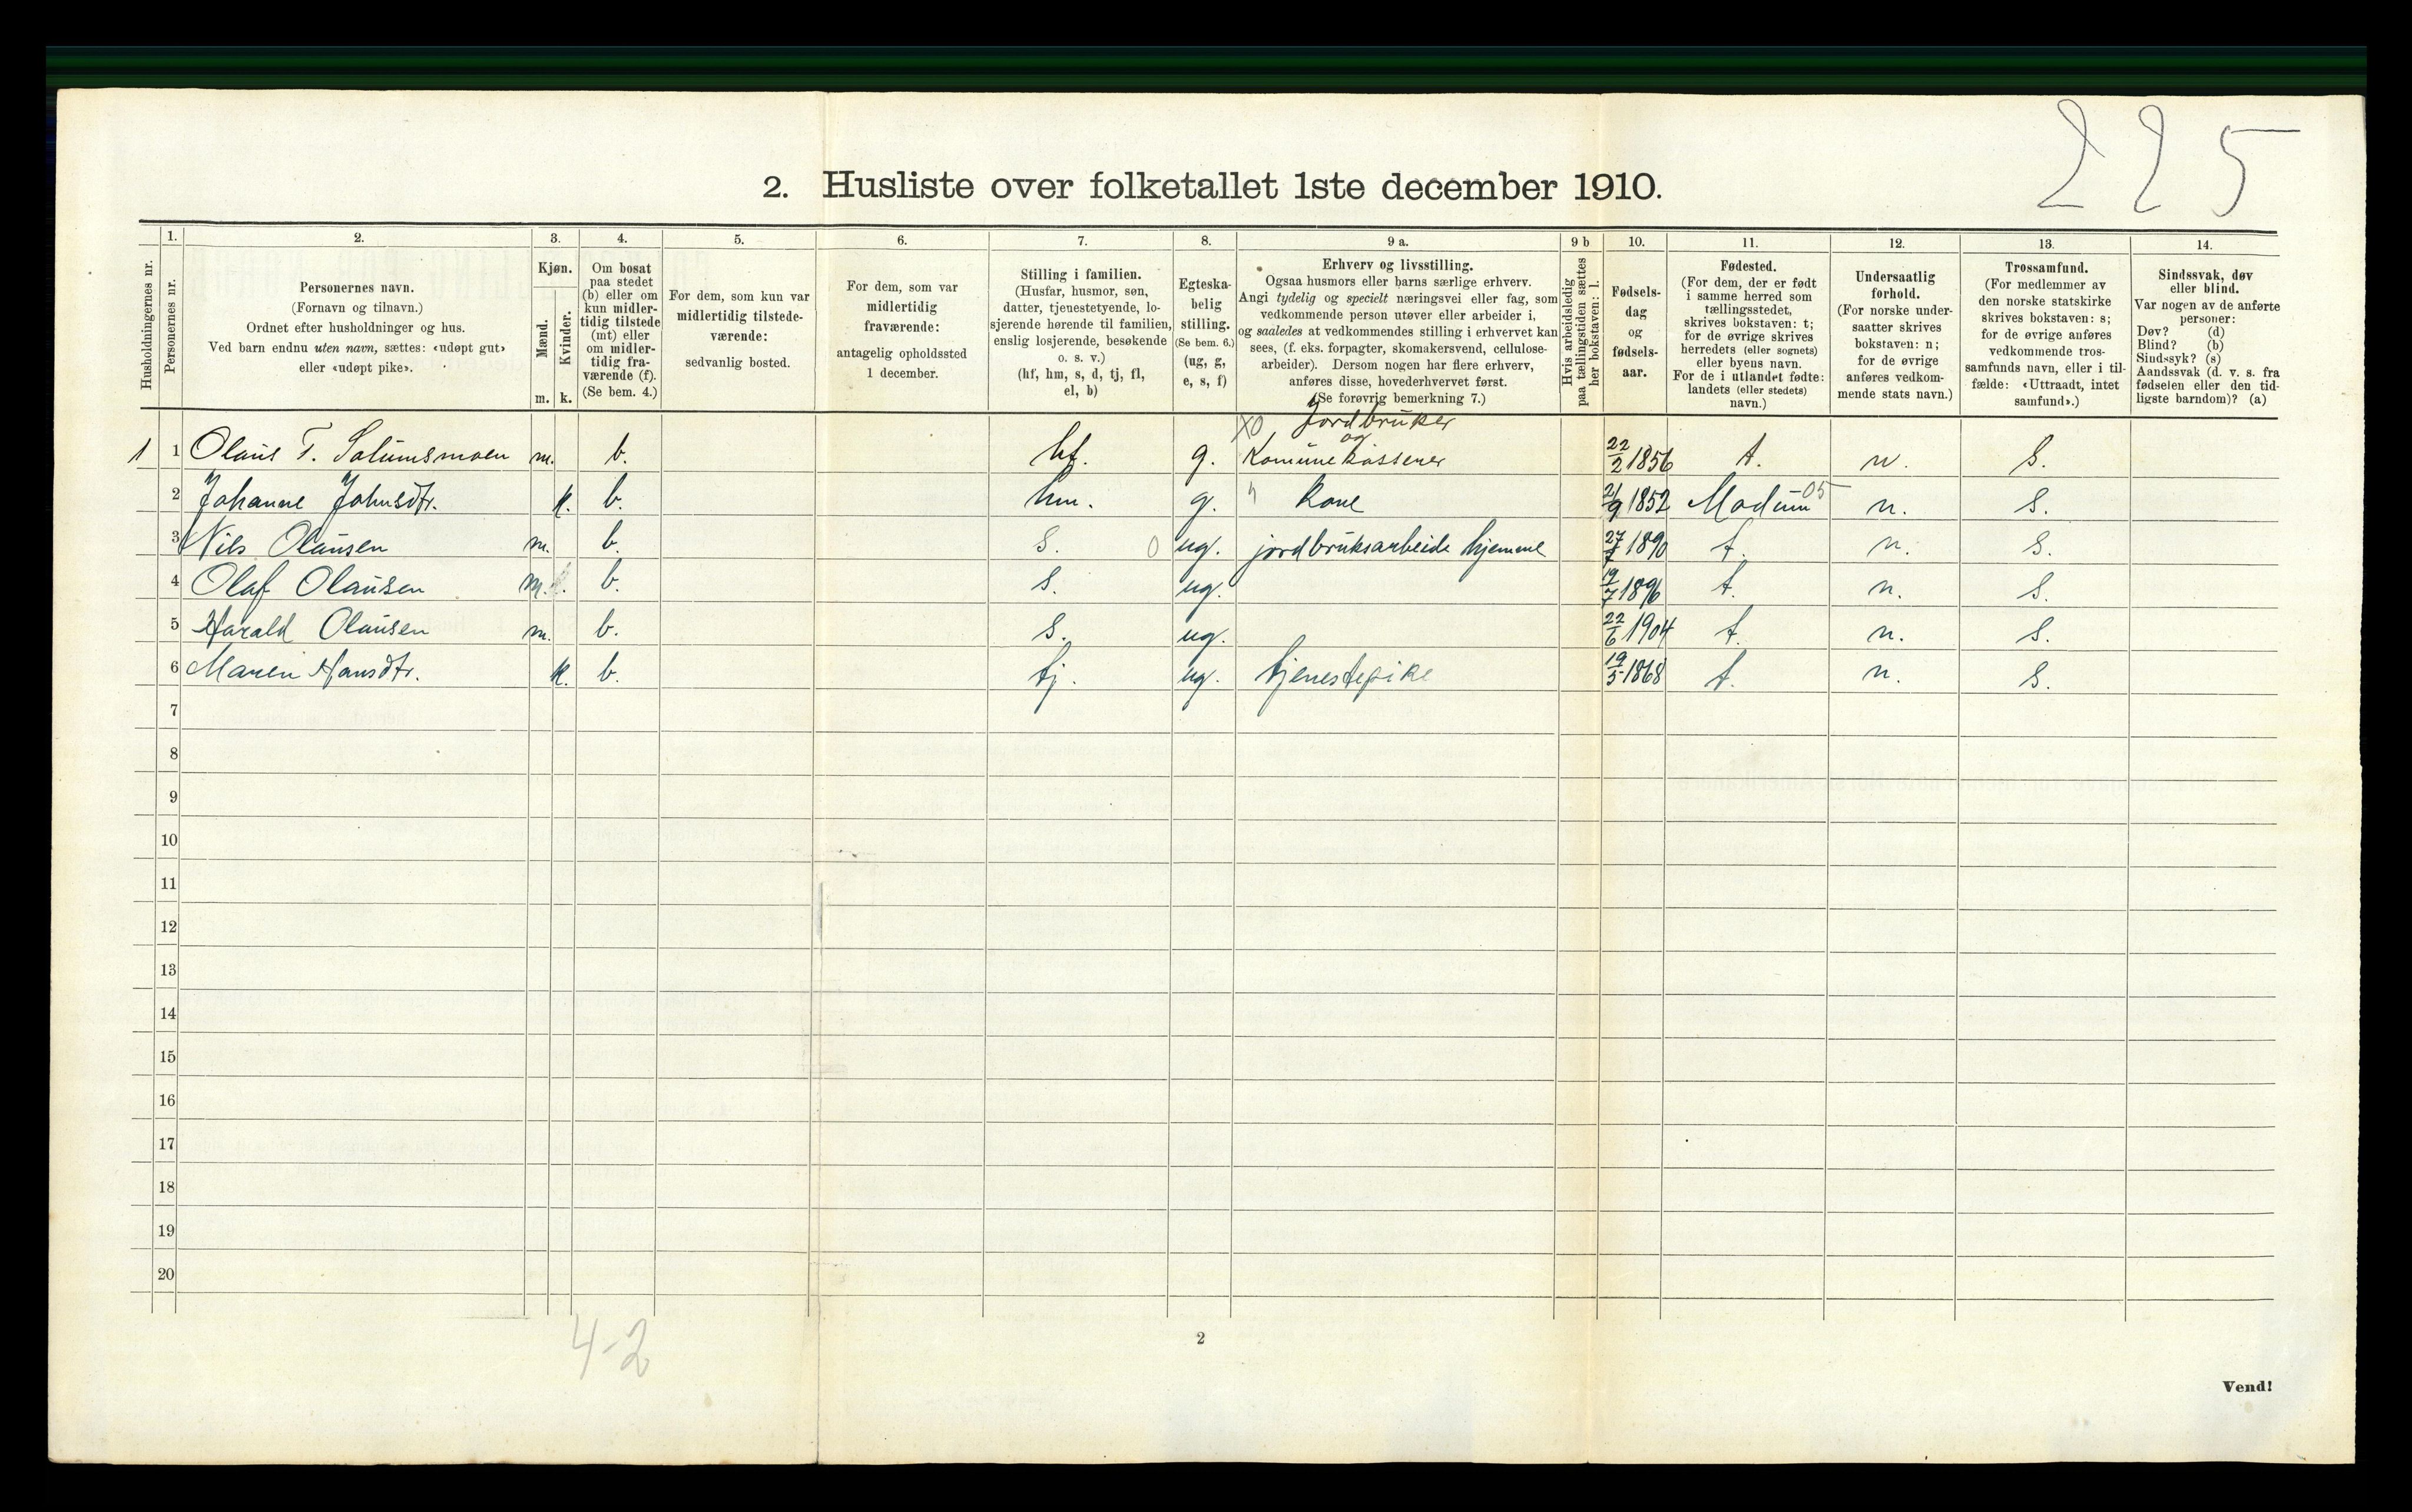 225
2. Husliste over folketallet 1ste december 1910.
Husholdningernes nr.
1. Personernes nr.
2. Personernes navn. (Fornavn og tilnavn.) Ordnet efter husholdninger og hus. Ved barn endnu uten navn, sættes: «udøpt gut» eller «udøpt pike».
3. Kjøn. Mænd. m. Kvinder. k.
4. Om bosat paa stedet (b) eller om kun midlertidig tilstede (mt) eller om midlertidig fraværende (f). (Se bem. 4.)
5. For dem, som kun var midlertidig tilstedeværende: sedvanlig bosted.
6. For dem, som var midlertidig fraværende: antagelig opholdssted 1 december.
7. Stilling i familien. (Husfar, husmor, søn, datter, tjenestetyende, losjerende hørende til familien, enslig losjerende, besøkende o. s. v.) (hf, hm, s, d, tj, fl, el, b)
8. Egteskabelig stilling. (Se bem. 6.) (ug, g, e, s, f)
9 a. Erhverv og livsstilling. Ogsaa husmors eller barns særlige erhverv. Angi tydelig og specielt næringsvei eller fag, som vedkommende person utøver eller arbeider i, og saaledes at vedkommendes stilling i erhvervet kan sees, (f. eks. forpagter, skomakersvend, cellulosearbeider). Dersom nogen har flere erhverv, anføres disse, hovederhvervet først. (Se forøvrig bemerkning 7.)
9 b Hvis arbeidsledig paa tællingstiden sættes her bokstaven: l.
10. Fødselsdag og fødselsaar.
11. Fødested. (For dem, der er født i samme herred som tællingsstedet, skrives bokstaven: t; for de øvrige skrives herredets (eller sognets) eller byens navn. For de i utlandet fødte: landets (eller stedets) navn.)
12. Undersaatlig forhold. (For norske undersaatter skrives bokstaven: n; for de øvrige anføres vedkommende stats navn.)
13. Trossamfund. (For medlemmer av den norske statskirke skrives bokstaven: s; for de øvrige anføres vedkommende trossamfunds navn, eller i tilfælde: «Uttraadt, intet samfund».)
14. Sindssvak, døv eller blind. Var nogen av de anførte personer: Døv? (d) Blind? (b) Sindssyk? (s) Aandssvak (d. v. s. fra fødselen eller den tidligste barndom)? (a)
1 1 Olaus T. Solumsmoen m. b. hf. g. X0 Jordbruker og Komunekasserer 22/2 1856 t. n. s.
2 Johanne Johnsdtr. k. b. hm. g. Kone 21/9 1852 Modum 05 n. s.
3 Nils Olausen m. b. s. 0 ug. jordbruksarbeide hjemme 27/7 1890 t. n. s.
4 Olaf Olausen m. b. s. ug. 19/7 1896 t. n. s.
5 Harald Olausen m. b. s. ug. 22/6 1904 t. n. s.
6 Maren Hansdtr. k. b. tj. ug. tjenestepike 19/5 1868 t. n. s.
7
8
9
10
11
12
13
14
15
16
17
18
19
20
4-2
2
Vend!